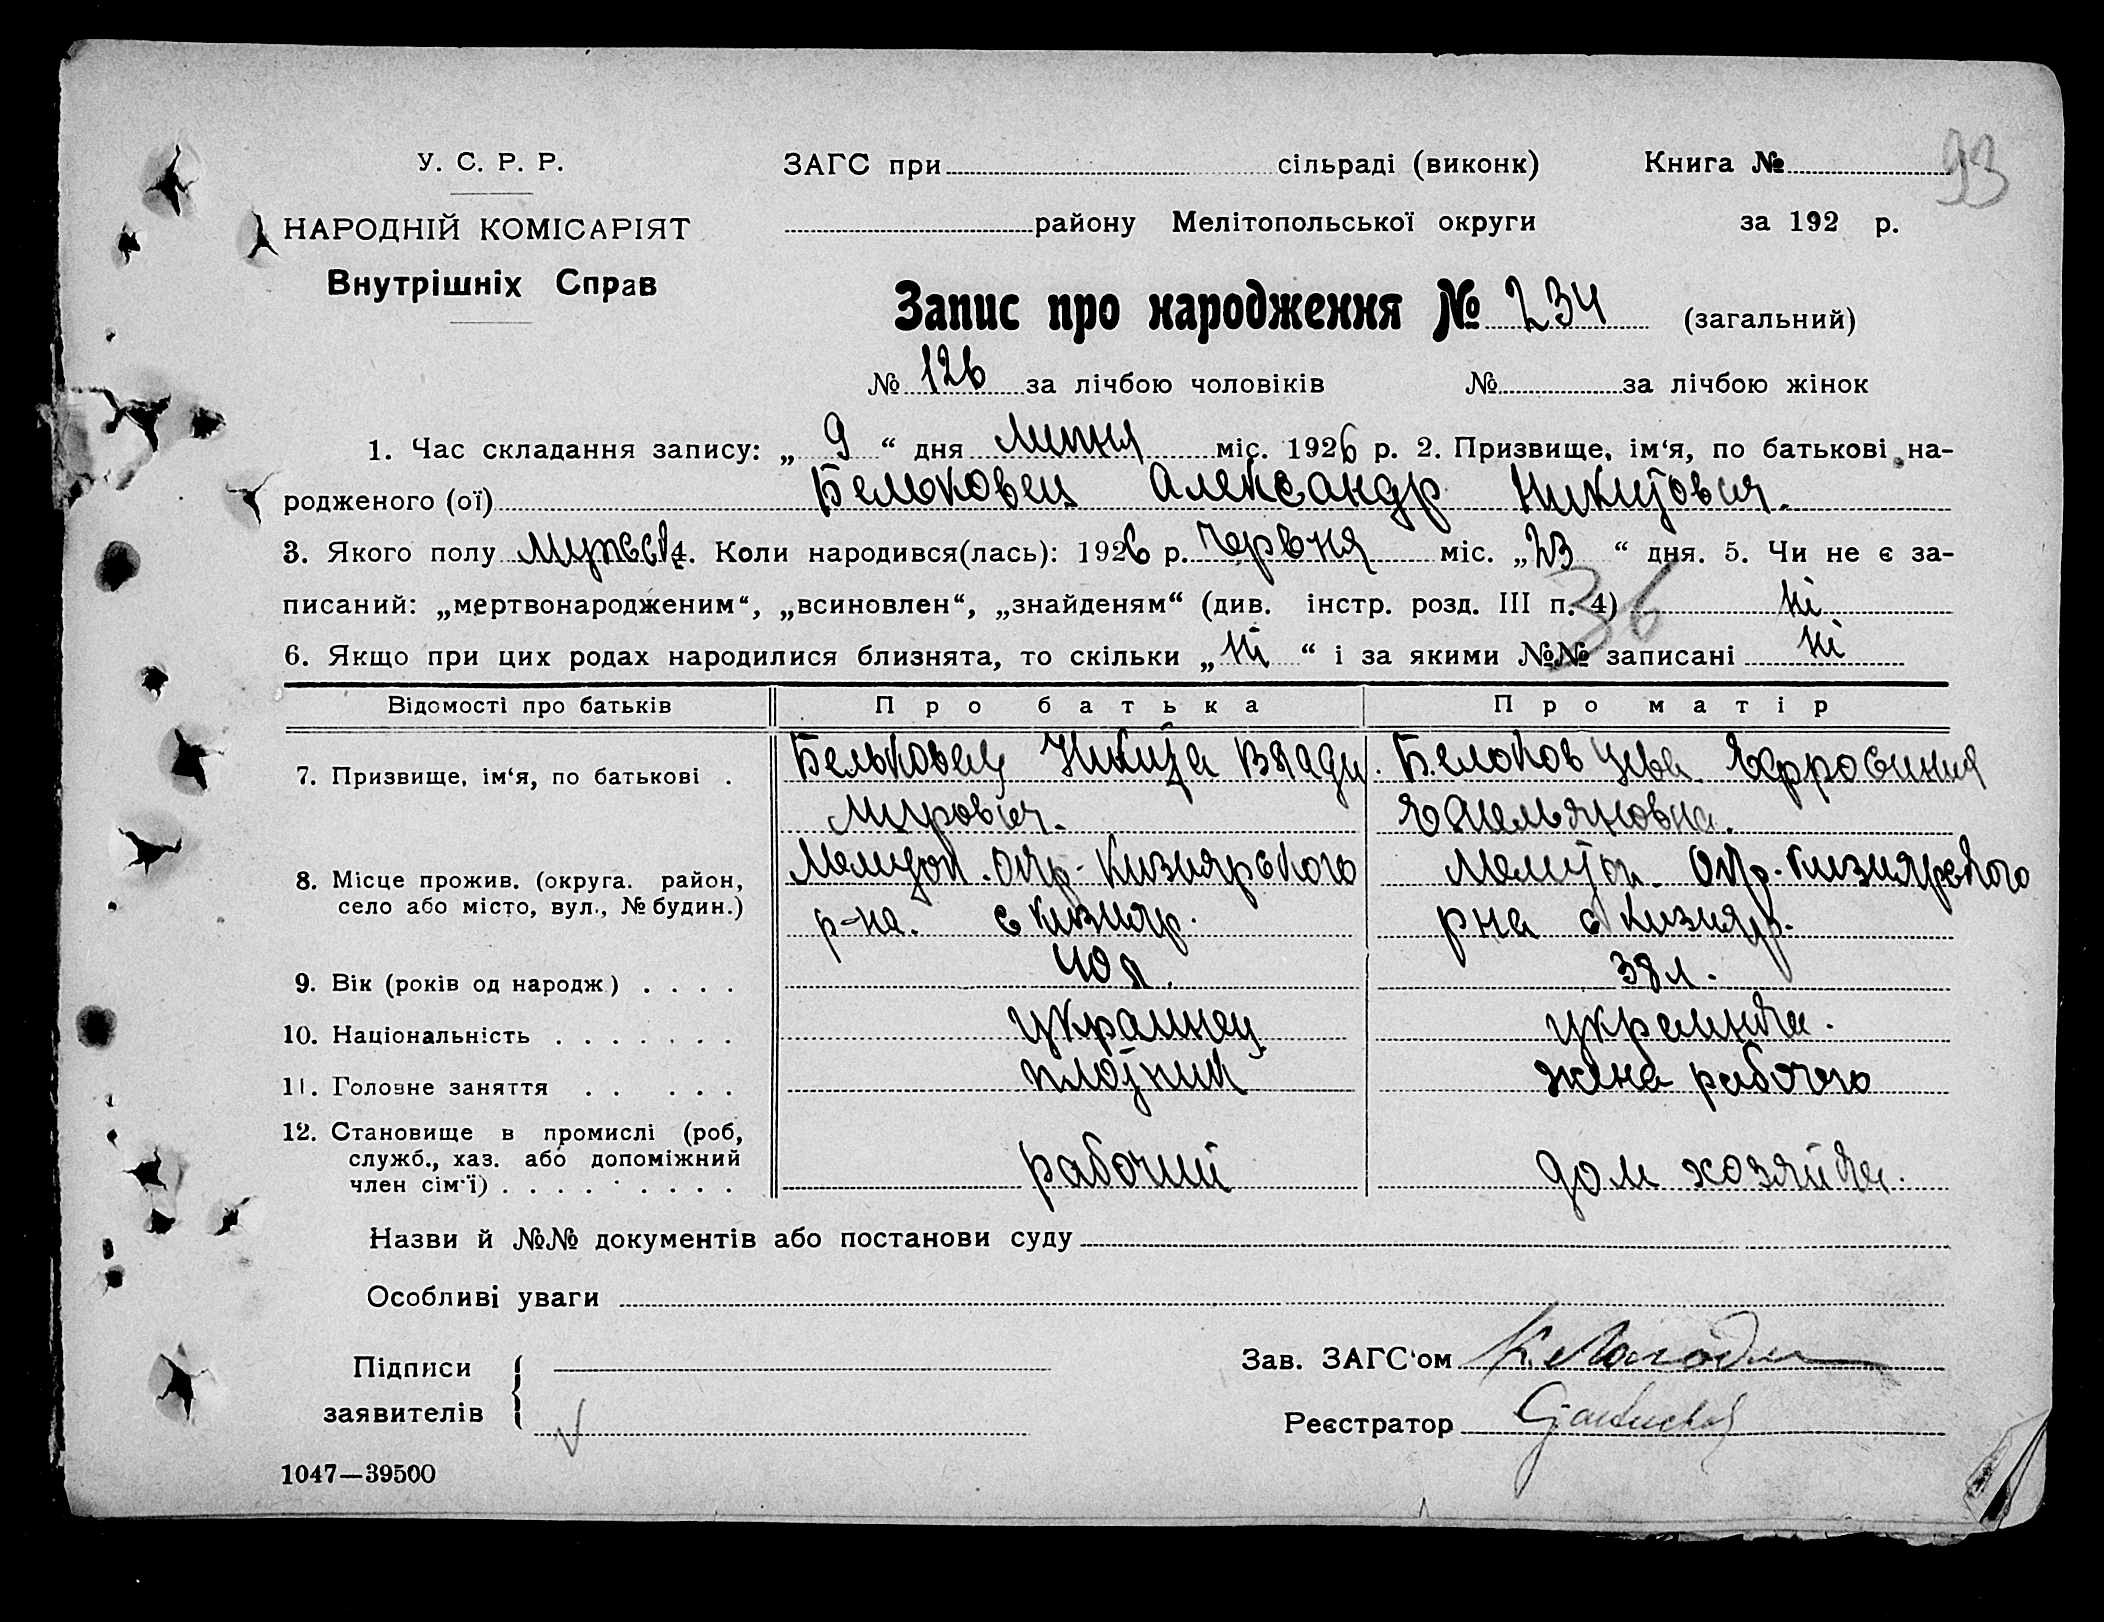 93
У. С. Р. Р. ЗАГС при сільраді (виконк) Книга №
НАРОДНІЙ КОМІСАРІЯТ району Мелітопольської округи за 192 р.
Внутрішніх Справ
Запис про народження № 234 (загальний)
№ 126 за лічбою чоловіків № за лічбою жінок
1. Час складання запису: „ 9 “ дня липня міс. 1926 р. 2. Призвище, ім‘я, по батькові на-
родженого (ої) Бельковец Александр Никитович.
3. Якого полу мужск 4. Коли народився(лась): 1926 р. Червня міс. „23 “ дня. 5. Чи не є за-
писаний: „мертвонародженим“, „всиновлен“, „знайденям“ (див. інстр. розд. III п. 4) ні
36
6. Якщо при цих родах народилися близнята, то скільки „ ні “ і за якими №№ записані ні
Відомості про батьків Про батька Про матір
7. Призвище, ім‘я, по батькові . Бельковец Никита Влади Бельковцева Ефросиния
мирович. Емельяновна.
8. Місце прожив. (округа. район, Мелитоп. окр. Кизиярского Мелитоп. окр. Кизиярского
село або місто, вул., № будин.) р-на. с Кизияр. рна с Кизияр.
9. Вік (років од народж) . . . . 40 л. 38 л.
10. Національність . . . . . . . украинец украинка.
11. Головне заняття . . . . . плотник жена рабочего
12. Становище в промислі (роб,
служб., хаз. або допоміжний рабочий дом хозяйка.
член сім‘ї) . . . . . . . . .
Назви й №№ документів або постанови суду
Особливі уваги
Підписи Зав. ЗАГС‘ом
заявителів Реєстратор
1047—39500